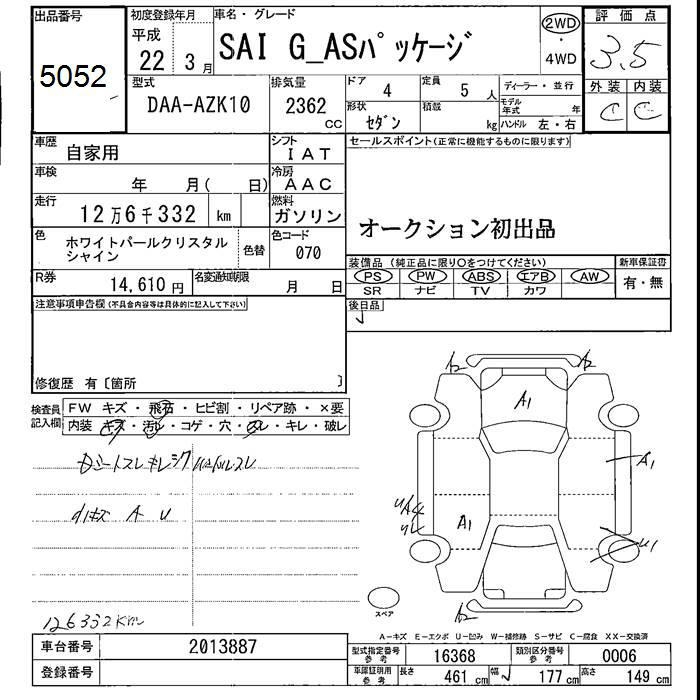 出品番号
5052
初度登録年月
平成
22 3月
車名・グレード
SAI G_ASパッケージ
2WD
・
4WD
評価点
3.5
外装 内装
C C
型式
DAA-AZK10
排気量
2362
CC
ドア 4
定員 5 人
形状 セダン
積載 kg
ディーラー・並行
モデル年式 年
ハンドル 左・右
車歴 自家用
シフト IAT
車検 年 月( 日)
冷房 AAC
走行 12万6千332 km
燃料 ガソリン
色 ホワイトパールクリスタル
シャイン
色替
色コード 070
R券 14,610円
名変通知期限 月 日
セールスポイント(正常に機能するものに限ります)
オークション初出品
装備品(純正品に限り○をつけてください)
PS PW ABS エアB AW
SR ナビ TV カワ
新車保証書
有・無
後日品
注意事項申告欄(不具合内容等は具体的に記入して下さい)
修復歴 有〔箇所 〕
検査員
記入欄
FW キズ・飛石・ヒビ割・リペア跡・×要
内装 キズ・汚レ・コゲ・穴・スレ・キレ・破レ
小キズ A U
126332Km
A2 A2
A1
A1
A1
U1
A2
スペア
A-キズ E-エクボ U-凹み W-補修跡 S-サビ C-腐食 XX-交換済
車台番号 2013887
登録番号
型式指定番号
参考
16368
類別区分番号
参考
0006
車庫証明用
参考
長さ 461 cm
幅 177 cm
高さ 149 cm